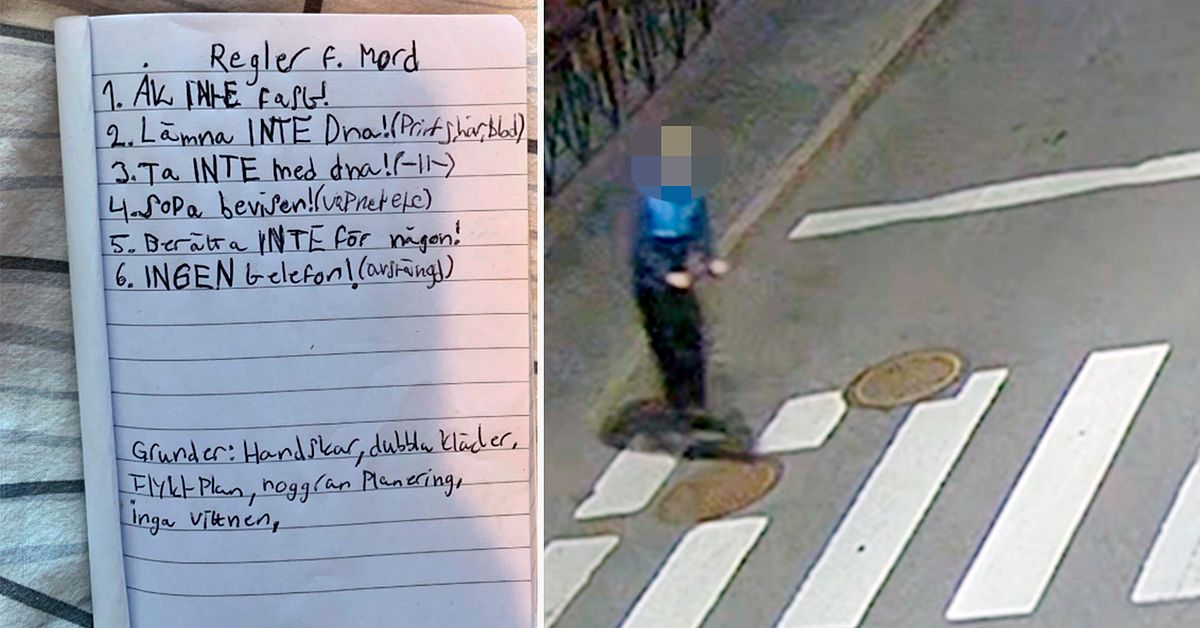 Regler f. Mord
1. Åk INTE fast!
2. Lämna INTE Dna! (Print, hår, blod)
3. Ta INTE med dna! (-11-)
4. Sopa bevisen! (vapnet etc)
5. Berätta INTE för någon!
6. INGEN telefon! (avstängd)
Grunder: Handskar, dubbla kläder,
Flykt-Plan, noggran Planering,
inga vittnen,